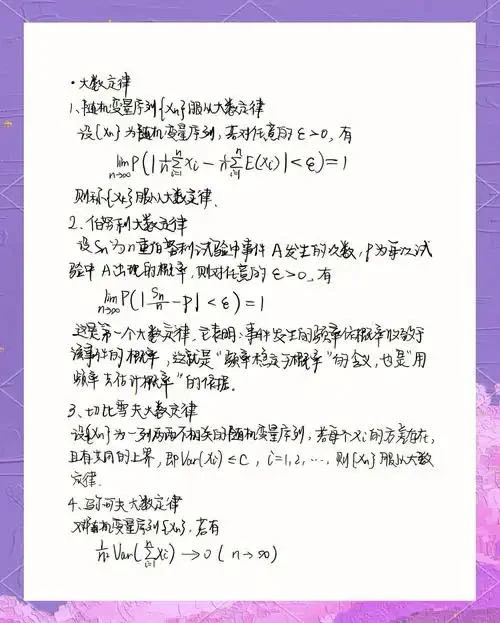 ·大数定律
1、随机变量序列{Xn}服从大数定律
设{Xn}为随机变量序列,若对任意的ε>0,有
lim n→∞ P(|1/n ∑ i=1 n Xi - 1/n ∑ i=1 n E(Xi)|<ε)=1
则称{Xn}服从大数定律.
2、伯努利大数定律
设Sn为n重伯努利试验中事件A发生的次数,p为每次试
验中A出现的概率,则对任意的ε>0,有
lim n→∞ P(|Sn/n - p|<ε)=1
这是第一个大数定律,它表明:事件发生的频率依概率收敛于
该事件的概率,这就是“频率稳定于概率”的含义,也是“用
频率去估计概率”的依据.
3、切比雪夫大数定律
设{Xn}为一列两两不相关的随机变量序列,若每个Xi的方差存在,
且有共同的上界,即Var(Xi)≤C,i=1,2,…,则{Xn}服从大数
定律.
4、马尔可夫大数定律
对随机变量序列{Xn},若有
1/n² Var(∑ i=1 n Xi)→0(n→∞)